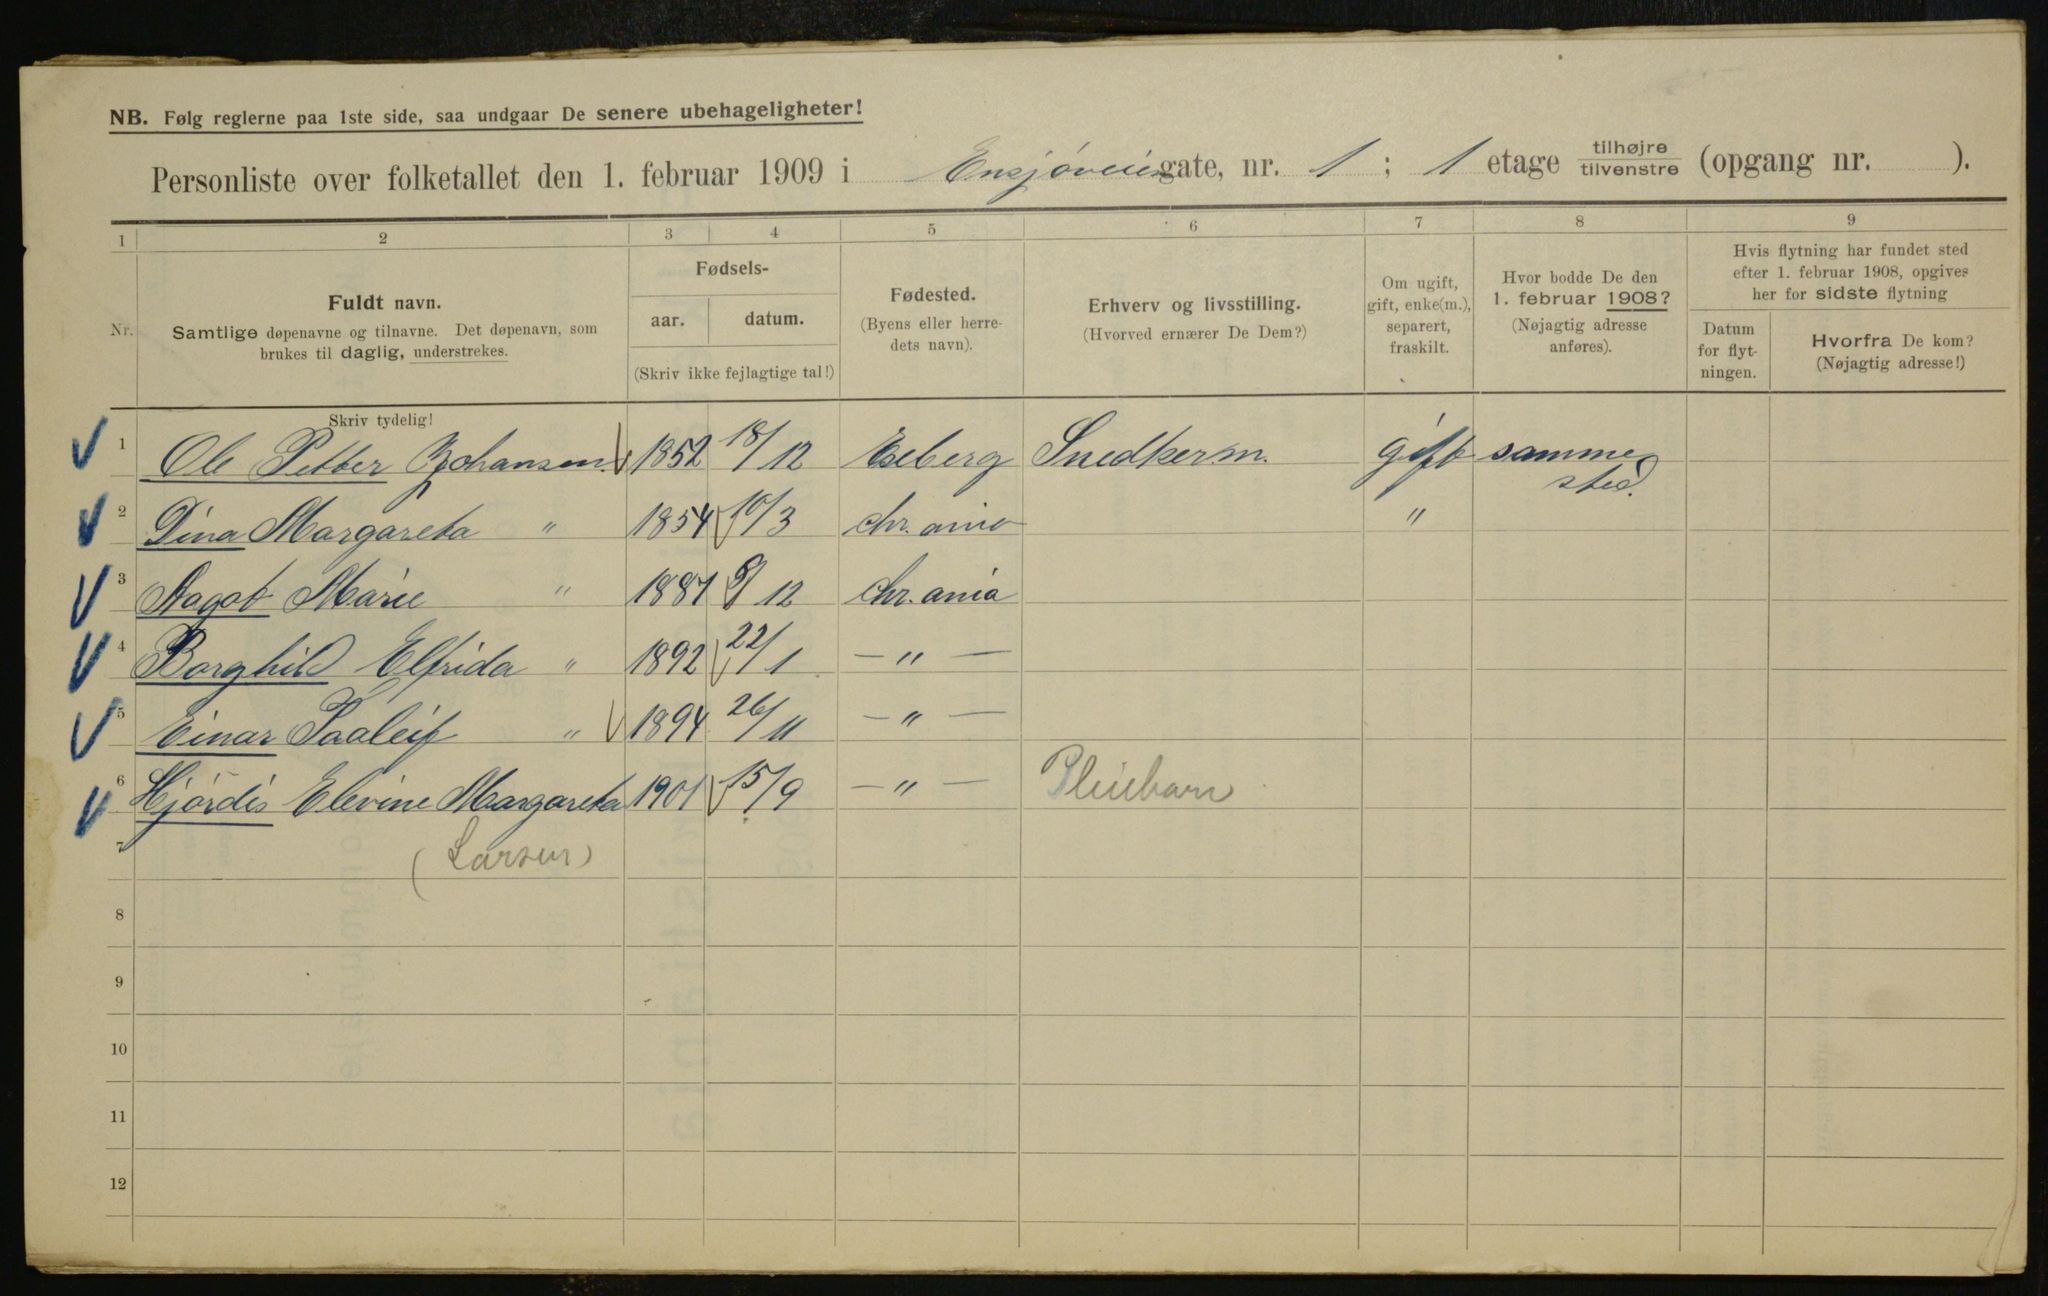 NB. Følg reglerne paa 1ste side, saa undgaar De senere ubehageligheter!
Personliste over folketallet den 1. februar 1909 i Ensjøveien gate, nr. 1 ; 1 etage tilhøjre/tilvenstre (opgang nr. ).
1 2 3 4 5 6 7 8 9
Nr.
Fuldt navn.
Samtlige døpenavne og tilnavne. Det døpenavn, som
brukes til daglig, understrekes.
Fødsels-
aar. datum.
(Skriv ikke fejlagtige tal!)
Fødested.
(Byens eller herre-
dets navn).
Erhverv og livsstilling.
(Hvorved ernærer De Dem?)
Om ugift,
gift, enke(m.),
separert,
fraskilt.
Hvor bodde De den
1. februar 1908?
(Nøjagtig adresse
anføres).
Hvis flytning har fundet sted
efter 1. februar 1908, opgives
her for sidste flytning
Datum
for flyt-
ningen.
Hvorfra De kom?
(Nøjagtig adresse!)
Skriv tydelig!
1 Ole Petter Johansen. 1852 18/12 Eseberg Snedkerm. gift samme
sted.
2 Dina Margareta " 1854 10/3 Chr.ania "
3 Aagot Marie " 1887 8/12 Chr.ania
4 Borghild Elfrida " 1892 22/1 — " —
5 Einar Taaleif " 1894 26/11 — " —
6 Hjørdis Elevine Margareta 1901 15/9 — " — Pleiebarn
7 (Larsen)
8
9
10
11
12